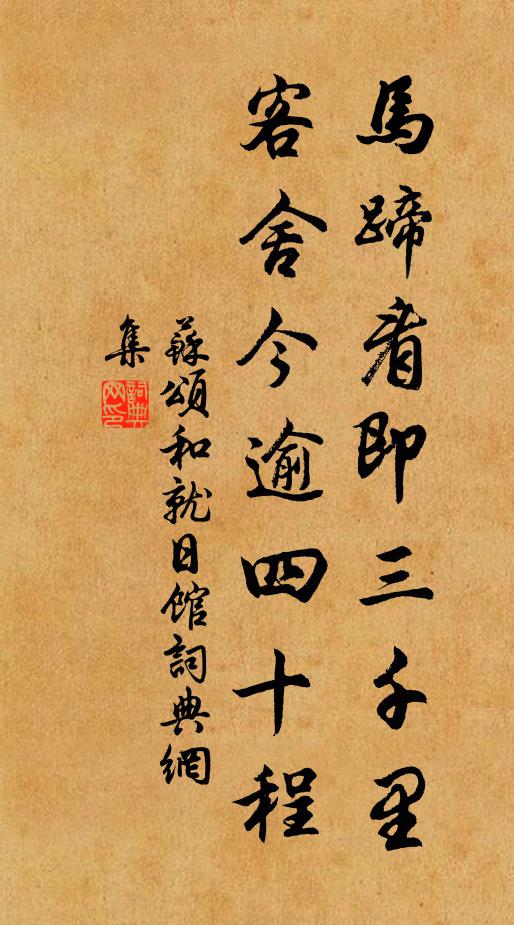 馬蹄看即三千里
客舍今逾四十程
蘇頌和就日館詞典網
集
詞典網印